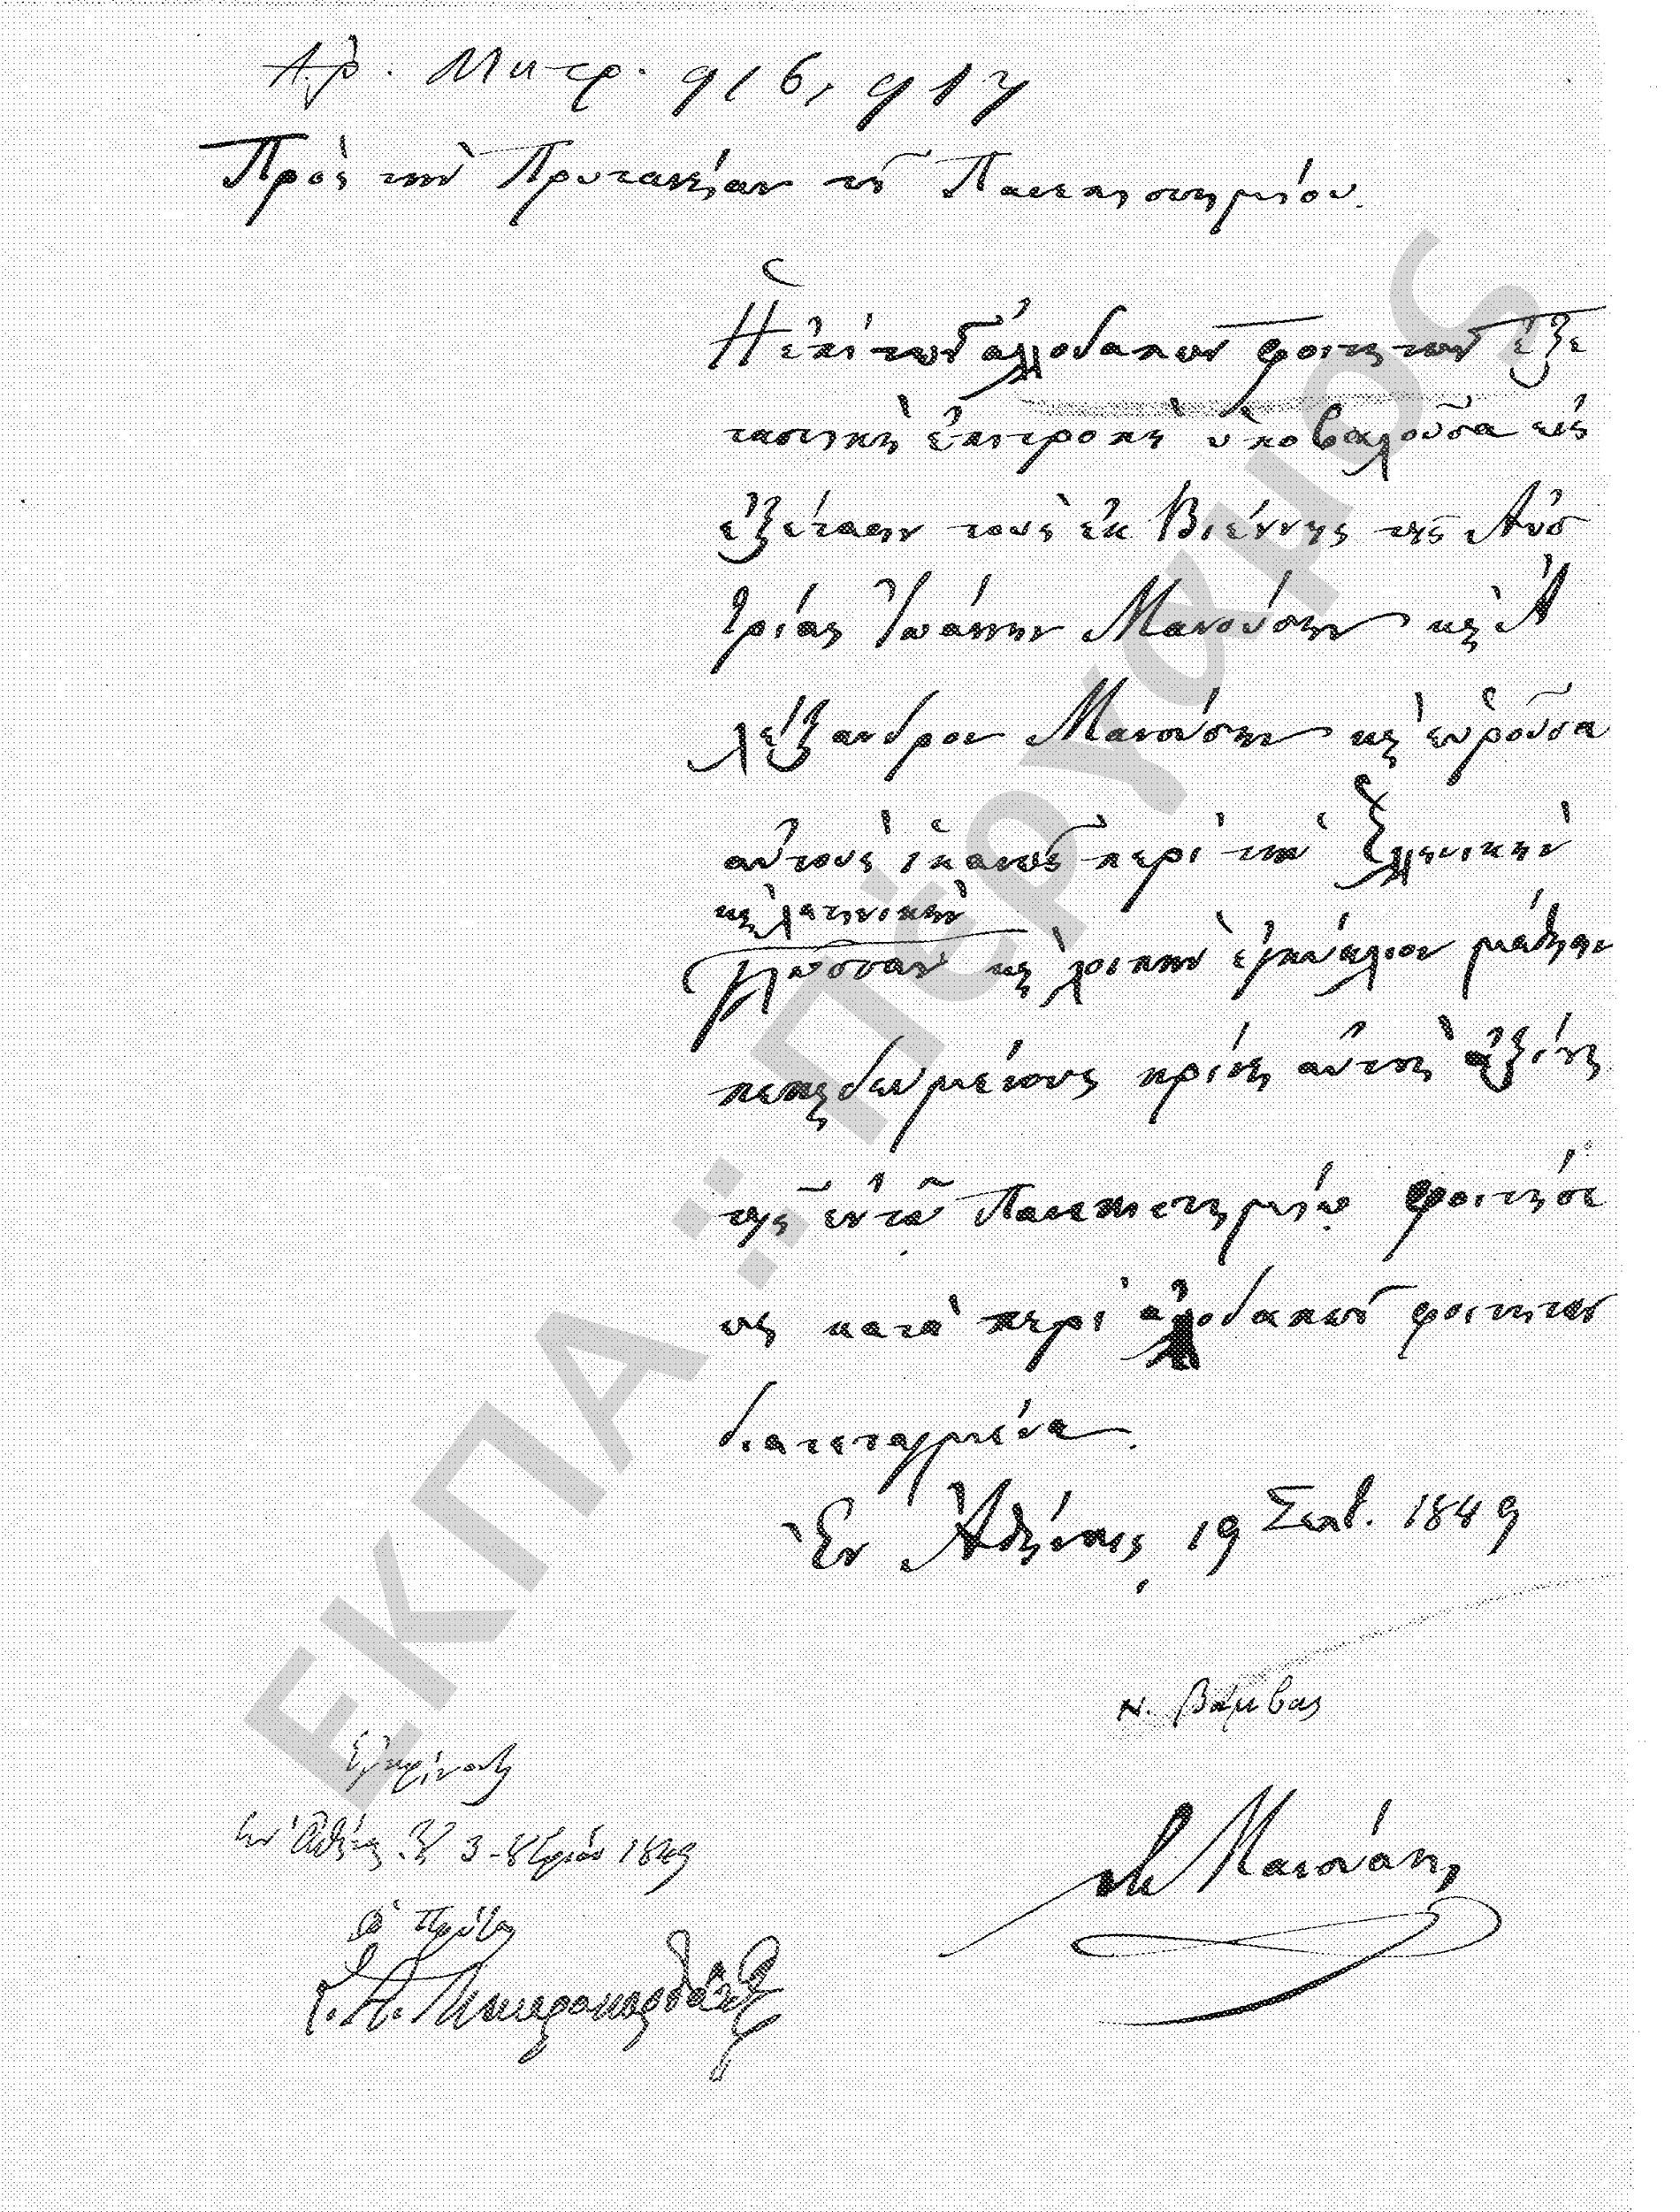 Αρ. Μητρ. 916, 917
Πρὸς τὴν Πρυτανείαν τοῦ Πανεπιστημίου.
Ἡ ἐπὶ τῶν ἀλλοδαπῶν φοιτητῶν ἐξε
ταστικὴ ἐπιτροπὴ ὑποβαλοῦσα εἰς
ἐξέτασιν τοὺς ἐκ Βιέννης τῆς Αὐσ
τρίας Ἰωάννην Μανούσην καὶ Ἀ
λέξανδρον Μανούσην καὶ εὑροῦσα
αὐτοὺς ἱκανῶς περὶ τὴν Ἑλληνικὴν
καὶ λατινικὴν
γλῶσσαν καὶ λοιπὴν ἐγκύκλιον μάθησιν
πεπαιδευμένους κρίνει αὐτοὺς ἀξίους
τῆς ἐν τῷ Πανεπιστημίῳ φοιτήσε
ως κατὰ περὶ ἀλλοδαπῶν φοιτητῶν
διατεταγμένα.
Ἐν Ἀθήναις, 19 Σεπτ. 1849
Ν. Βάμβας
Μανούσης
Ἐγκρίνονται
Ἐν Ἀθήναις τῇ 3 - 8βρίου 1849
Ὁ Πρύτανις
ΕΚΠΑ .: ΠΕΡΓΑΜΟΣ